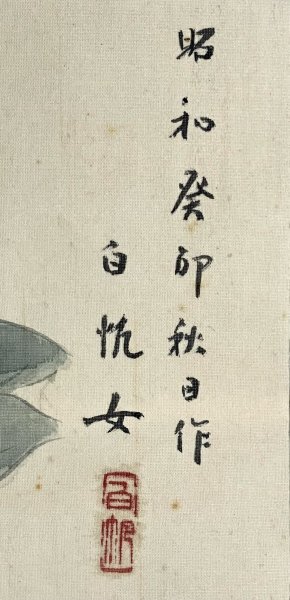 昭和癸卯秋日作
白帆女